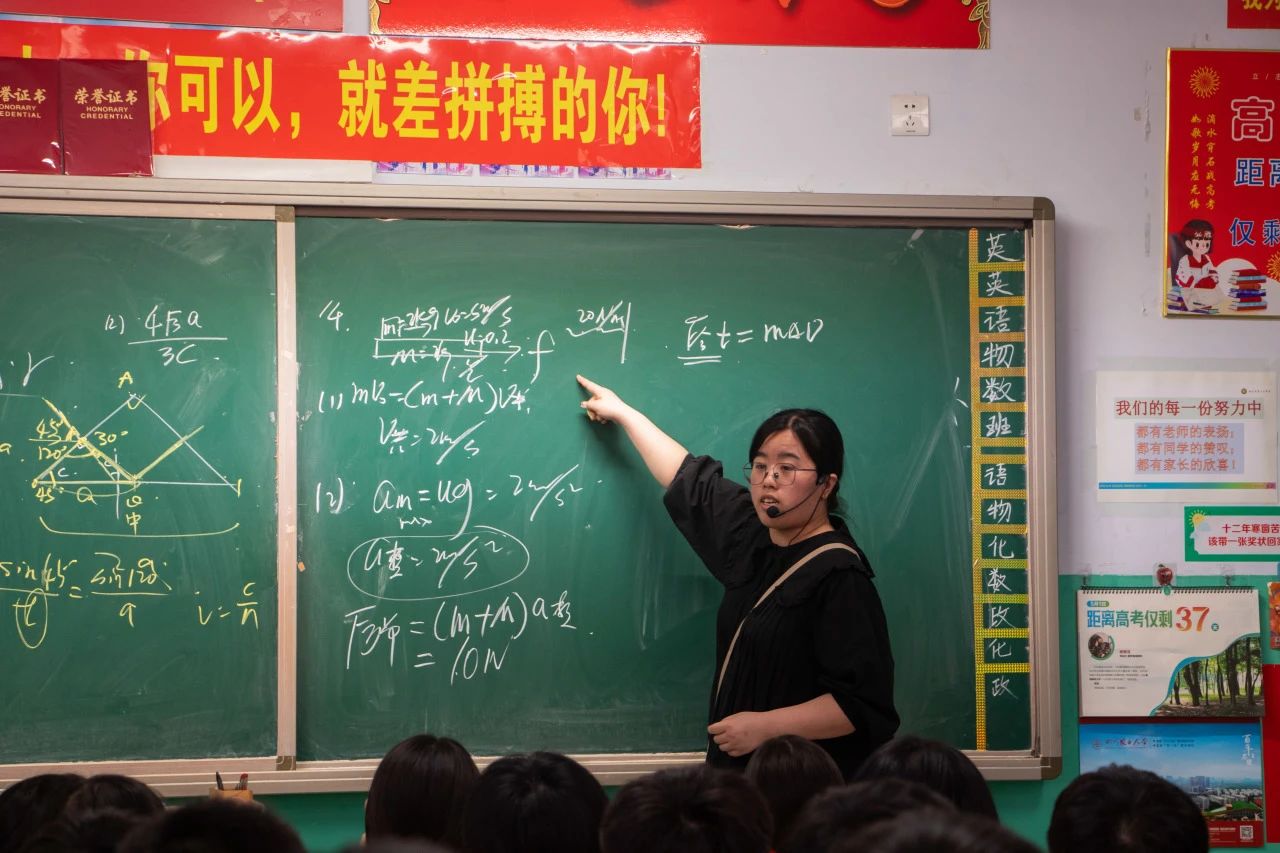 你可以，就差拼搏的你!
荣誉证书
HONORARY
CREDENTIAL
荣誉证书
HONORARY
CREDENTIAL
(2) 4√3a
3C
A
45°
30°
120°
C
45°
a
中
sin45 = sin120
a
i = c/n
14.
f
Ft = mΔv
(1) mv₀=(m+M)v共
v共=2m/s
(2) am=ug=2m/s²
max
a整=2m/s²
=(m+M)a整
=10N
英
英
语
物
数
班
语
物
化
数
政
化
政
高
距离
仅剩
滴水穿石战高考
如歌岁月应无悔
我们的每一份努力中
都有老师的表扬；
都有同学的赞叹；
都有家长的欣喜！
十二年寒窗苦
该带一张奖状回家
距离高考仅剩37天